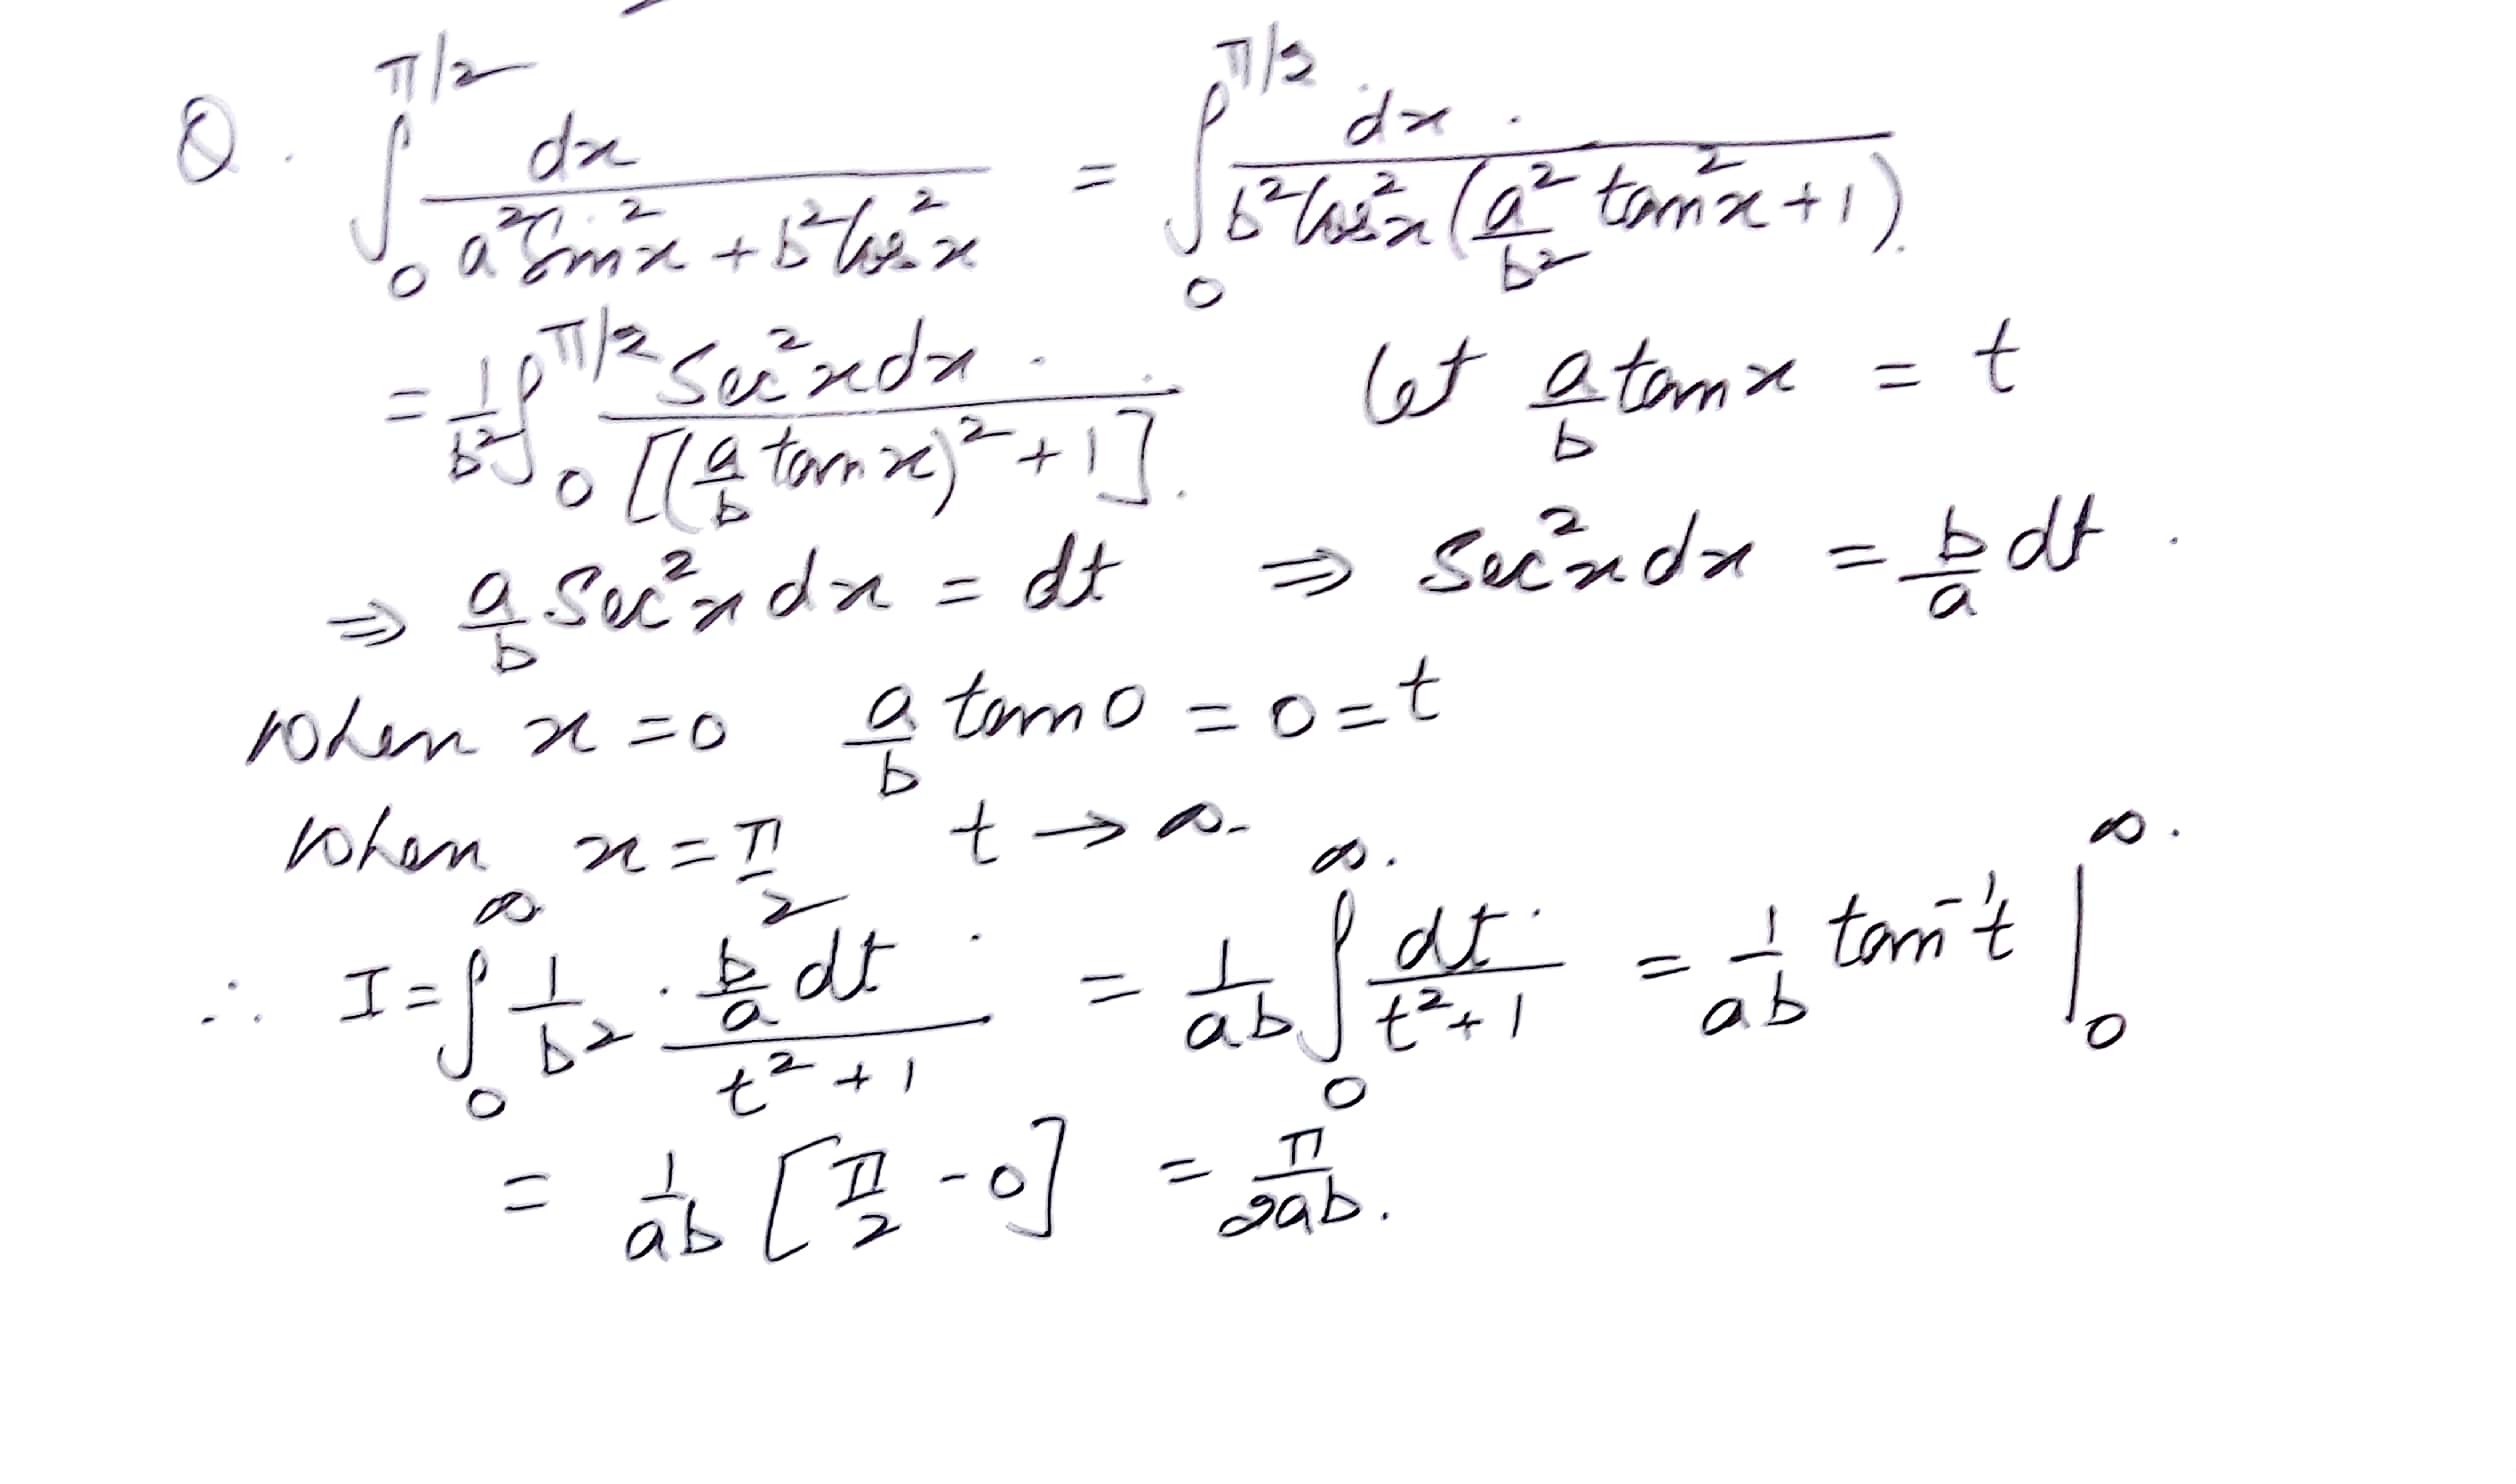 Q. ∫₀^{π/2} dx / (a² Sin²x + b² Cos²x) = ∫₀^{π/2} dx / (b² Cos²x (a²/b² tan²x + 1))
= 1/b² ∫₀^{π/2} Sec²x dx / [(a/b tan x)² + 1]. let a/b tan x = t
⇒ a/b Sec²x dx = dt ⇒ Sec²x dx = b/a dt.
When x = 0 a/b tan 0 = 0 = t
When x = π/2 t → ∞.
∴ I = ∫₀^∞ 1/b² · (b/a dt) / (t² + 1) = 1/ab ∫₀^∞ dt / (t² + 1) = 1/ab tan⁻¹t |₀^∞.
= 1/ab [π/2 - 0] = π/2ab.